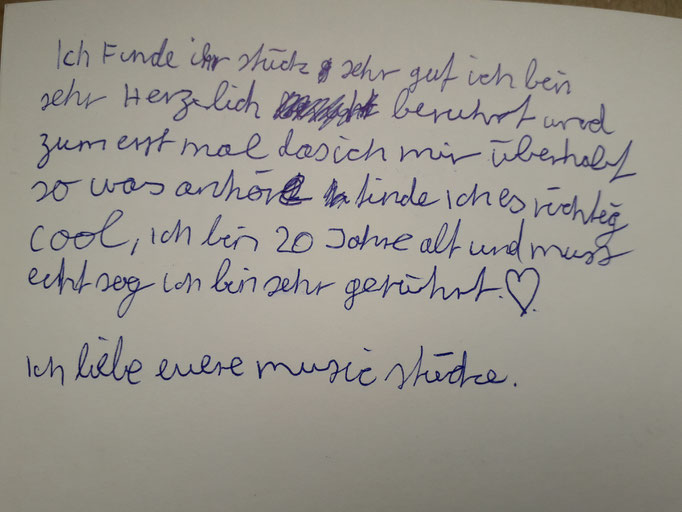 Ich Finde ihr stück sehr gut ich bin
sehr Herzlich beruhrt und
zum erst mal das ich mir überhabt
so was anhöre finde ich es richtig
cool, ich bin 20 Jahre alt und muss
echt sag ich bin sehr gerührt. ♡
Ich liebe euere music stücke.